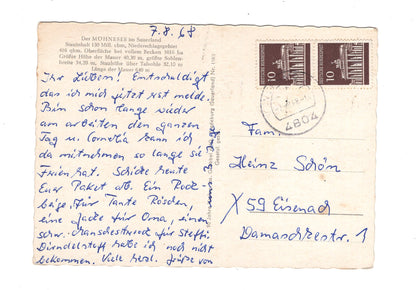 7.8.68
Der MÖHNESEE im Sauerland
Stauinhalt 130 Mill. cbm, Niederschlagsgebiet
416 qkm. Oberfläche bei vollem Becken 1016 ha
Größte Höhe der Mauer 40,30 m, größte Sohlen-
breite 34,20 m, Stauhöhe über Talsohle 32,10 m
Länge der Mauer 640 m
Ihr Lieben! Entschuldigt
das ich mich jetzt erst melde.
Bin schon lange wieder
am arbeiten den ganzen
Tag u. Cornelia kann ich
da mitnehmen so lange sie
Ferien hat. Schicke heute
Euer Paket ab. Ein Rock-
beige, Für Tante Röschen,
eine Jacke für Oma, einen
schw. Steffi
Dirndelstoff habe ich noch nicht
bekommen. Viele herzl. Grüße von
10
10
4804
Fam.
Heinz Schön
X 59 Eisenach
Damaschkestr. 1